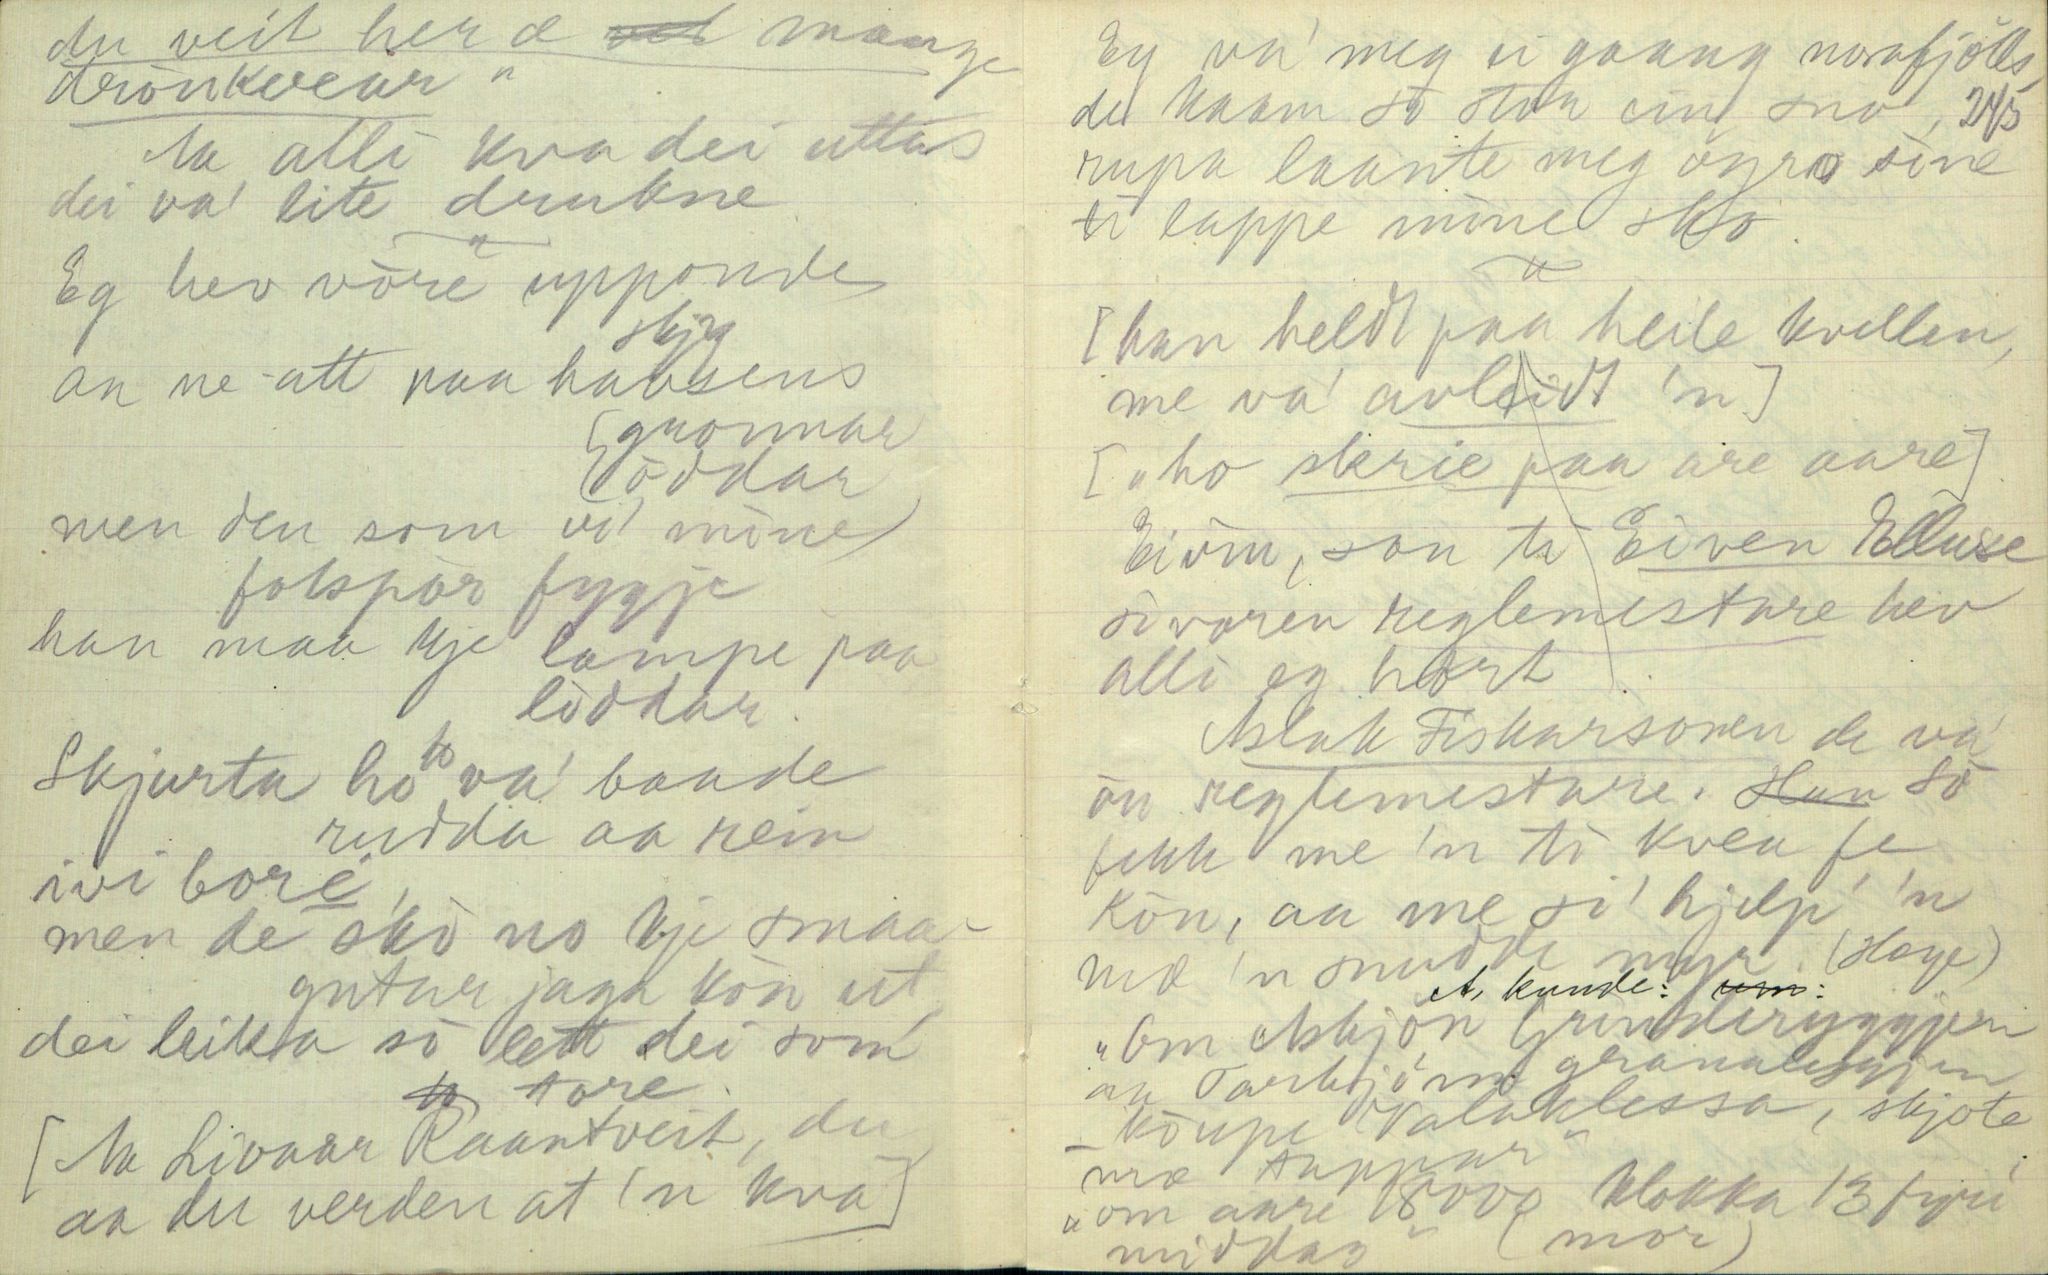 du veit her æ mange
drönkvear"
Aa alli kva dei uttas
dei va' lite drukne
"
Eg hev vöre upponde
skjy
aa ne-att paa havsens
[gronnar
[öddar
men den som vi' mine
fotspor fygje
han maa kje lampe paa
löddar.
Skjurta ho to va' baade
rudda aa rein
ivi bore,
men de sko no kje smaa-
gutar jaga kön ut
dei leika so lett dei som
tore.
[Aa Livaar Raantveit, du
aa du verden at 'n kva]
Eg va' meg ei gaang norafjölls,
de kaam so stor ein sno, 245
rupa laante meg öyro sine
ti lappe mine sko.
"
[han heldt paa heile kvellen,
me va' avleidt 'n]
["ho skrie paa are aare]
Eivin, son ti Eiven Elluse
sivoren reglemestare hev
alli eg hort.
Aslak Fiskarsonen de va'
ön reglemestare. Han So
fekk me 'n ti kvea fe
kön, aa me si' hjelp' 'n
mæ 'n snudde myr. (Høye)
A. kunde: um:
"Om Askjön Grinderyggjen
aa Tarkjönn granaleggjen
– köupe Valaklessa, skjote
mæ tuppar"
"om aare 18000 klokka 13 fyri
middag" (mor)